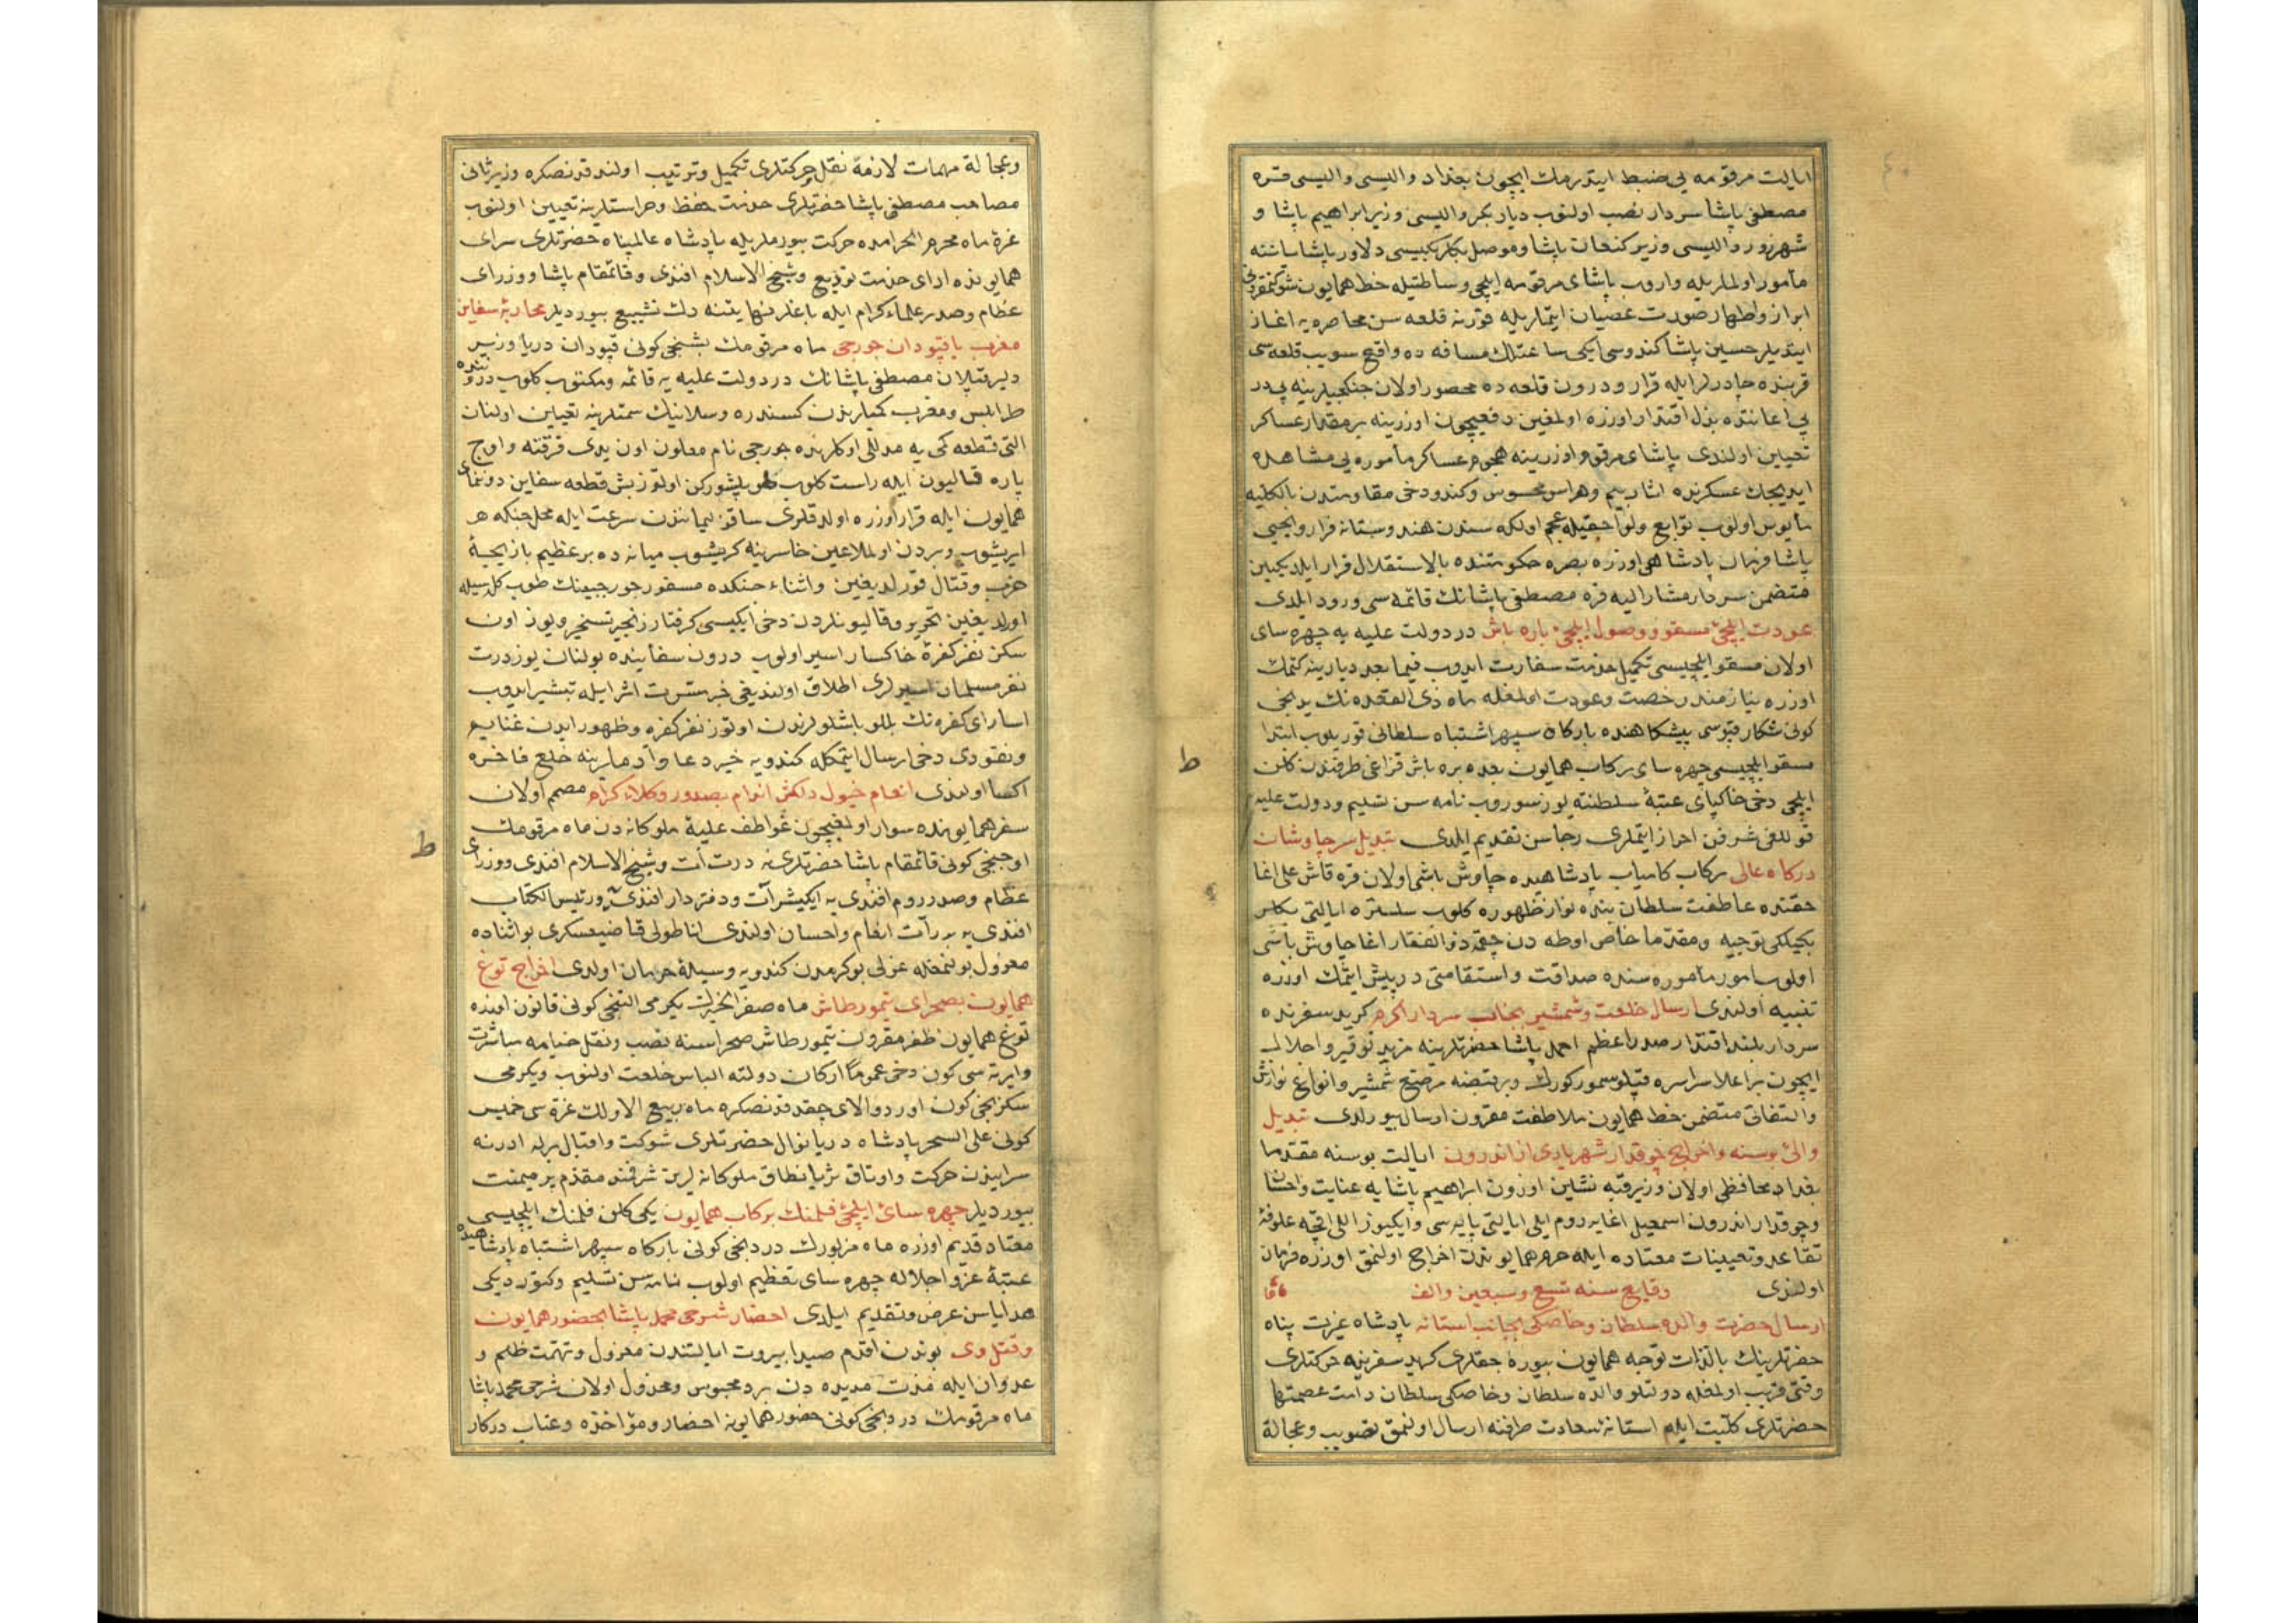 ايالت مرقومه يى ضبط ايتدرمك ايچون بغداد واليسى واليسى قره
مصطفى پاشا سردار نصب اولنوب ديار بكر واليسى وزير ابراهيم پاشا و
شهرزور واليسى وزير كنعان پاشا وموصل بكلربكيسى دلاور پاشا ساننه
مأمور اولملريله واروب پاشاى مرقومه ايلچى وساطتيله خط همايون شوكتمقرونى
ابراز واظهار صورت عصيان ايتملريله قورنه قلعه سن محاصره يه اغاز
ايتديلر حسين پاشا كندوسى ايكى ساعتلك مسافه ده واقع سويب قلعه سى
قربنده چادرلر ايله قرار ودرون قلعه ده محصور اولان جنكجيلرينه پى در
پى اعانتده بذل اقتدار اوزره اولمغين دفعيچون اوزرينه بر مقدار عساكر
تعيين اولندى پاشاى مرقوم اوزرينه هجوم عساكر مأموره يى مشاهده
ايديجك عسكرنده اثار بيم وهراس محسوس وكندو دخى مقاومتدن بالكليه
مأيوس اولوب توابع ولواحقيله عجم اولكه سندن هندوستانه فرار ويحيى
پاشا فرمان پادشاهى اوزره بصره حكومتنده بالاستقلال قرار ايلديكين
متضمن سردار مشار اليه قره مصطفى پاشانك قائمه سى ورود ايلدى
عودت ايلچئ مسقو ووصول ايلچئ باره باش در دولت عليه يه چهره ساى
اولان مسقو ايلچيسى تكميل خدمت سفارت ايدوب فيما بعد ديارينه كتمك
اوزره نيازمند رخصت وعودت اولمغله ماه ذى القعده نك يدنجى
كونى شكار قپوسى پيشكاهنده باركاه سپهر اشتباه سلطانى قوريلوب ابتدا
مسقو ايلچيسى چهره ساى ركاب همايون بعده بره باش قزاغى طرفندن كلن
ايلچى دخى خاكپاى عتبهٔ سلطنته يوز سوروب نامه سن تسليم ودولت عليه
قوللغى شرفن احراز ايتملرى رجاسن تقديم ايلدى تبديل سرچاوشان
دركاه عالى ركاب كامياب پادشاهيده چاوش باشى اولان قره قاش على اغا
حقنده عاطفت سلطان بنده نواز ظهوره كلوب سلستره ايالتى بكلر
بكيلكى توجيه ومقدما خاص اوطه دن چقمه ذو الفقار اغا چاوش باشى
اولوب امور مأموره سنده صداقت واستقامتى درپيش ايتمك اوزره
تنبيه اولندى ارسال خلعت وشمشير بجانب سردار اكرم كريد سفرنده
سردار بلند اقتدار صدر اعظم احمد پاشا حضرتلرينه مزيد توقير واجلال
ايچون بر اعلا سراسره قپلو سمور كورك وبر قبضه مرصع شمشير وانواع نوازش
والتفاتى متضمن خط همايون ملاطفت مقرون ارسال بيورلدى تبديل
والئ بوسنه واخراج چوقدار شهريارى از اندرون ايالت بوسنه مقدما
بغداد محافظى اولان وزير قبه نشين اوزون ابراهيم پاشايه عنايت واحسان
وچوقدار اندرون اسمعيل اغايه روم ايلى ايالتى پايه سى وايكيوز اللى اقچه علوفهٔ
تقاعد وتعيينات معتاده ايله حرم همايوندن اخراج اولنمق اوزره فرمان
اولندى وقايع سنه تسع وسبعين والف
ارسال حضرت والده سلطان وخاصكى بجانب استانه پادشاه عزت پناه
حضرتلرينك بالذات توجه همايون بيوره جقلرى كريد سفرينه حركتلرى
وقتى قريب اولمغله دولتلو والده سلطان وخاصكى سلطان دامت عصمتها
حضرتلرى كليت ايله استانهٔ سعادت طرفنه ارسال اولنمق تصويب وعجالة
ط
وعجالة مهمات لازمهٔ نقل حركتلرى تكميل وترتيب اولندقدنصكره وزير ثانى
مصاحب مصطفى پاشا حضرتلرى خدمت حفظ وحراستلرينه تعيين اولنوب
غرهٔ ماه محرم الحرامده حركت بيورملريله پادشاه عالمپناه حضرتلرى سراى
همايونده اداى خدمت توديع وشيخ الاسلام افندى وقائمقام پاشا ووزراى
عظام وصدر علماء كرام ايله باغلر نهايتنه دك تشييع بيورديلر محاربهٔ سفاين
مغرب با قپودان جورجى ماه مرقومك بشنجى كونى قپودان دريا وزير
دلير قپلان مصطفى پاشانك در دولت عليه يه قائمه ومكتوبى كلوب دروننده
طرابلس ومغرب كميلرندن كسندره وسلانيك سمتلرينه تعيين اولنان
التى قطعه كمى يه مدللى اوكلرنده جورجى نام معلون اون يدى فرقته واوچ
پاره قاليون ايله راست كلوب طوپلشوركن اوتوز بش قطعه سفاين دوننماى
همايون ايله قرار اوزره اولدقلرى ساقز ليمانندن سرعت ايله محل جنكه هر
ايريشوب وبردن اول ملاعين خاسرينه كريشوب ميانه ده بر عظيم بازيچهٔ
حرب وقتال قورلديغين واثناء جنكده مسقور جورجينك طوپ كله سيله
اولديغين تحرير وقاليونلردن دخى ايكيسى كرفتار زنجير تسخير ويوز اون
سكز نفر كفرهٔ خاكسار اسير اولوب درون سفاينده بولنان يوز درت
نفر مسلمان اسيرلرى اطلاق اولنديغى خبر مسرت اثر ايله تبشير ايدوب
اساراى كفره نك بللو باشلولرندن اوتوز نفر كفره وظهور ايدن غنايم
ونقودى دخى ارسال ايتمكله كندويه خير دعا وآدملرينه خلع فاخره
اكسا اولندى انعام خيول دلكش اندام بصدور وكلاء كرام مصمم اولان
سفر همايونده سوار اولمغيچون عواطف عليهٔ ملوكانه دن ماه مرقومك
اوچنجى كونى قائمقام پاشا حضرتلرينه درت آت وشيخ الاسلام افندى ووزراى
عظام وصدر روم افندى يه ايكيشر آت ودفتردار افندى يه ورئيس الكتاب
افندى يه برر آت انعام واحسان اولندى اناطولى قاضيعسكرى بو اثناده
معزول بولنمغله عزلى بو كرمدن كندويه وسيلهٔ حرمان اولدى اخراج توغ
همايون بصحراى تيمورطاش ماه صفر الخيرك يكرمى التنجى كونى قانون اوزره
توغ همايون ظفر مقرون تيمورطاش صحراسنه نصب ونقل خيامه مباشرت
وايرته سى كون دخى عموما اركان دولته الباس خلعت اولنوب ويكرمى
سكزنجى كون اوردو الاى چقدقدنصكره ماه ربيع الاولك غره سى خميس
كونى على السحر پادشاه دريا نوال حضرتلرى شوكت واقبال برله ادرنه
سرايندن حركت واوتاق ثريا نطاق ملوكانه لرين شرفند مقدم پر ميمنت
بيورديلر چهره سائ ايلچئ فلمنك بركاب همايون يكى كلن فلمنك ايلچيسى
معتاد قديم اوزره ماه مزبورك دردنجى كونى باركاه سپهر اشتباه پادشاهيده
عتبهٔ عز واجلاله چهره ساى تعظيم اولوب نامه سن تسليم وكتورديكى
هداياسن عرض وتقديم ايلدى احضار شرحى محمد پاشا بحضور همايون
وقتل وى بوندن اقدم صيدا بيروت ايالتندن معزول وتهمت ظلم و
عدوان ايله مدت مديده دن برو محبوس ومخذول اولان شرحى محمد پاشا
ماه مرقومك دردنجى كونى حضور همايونه احضار ومؤاخذه وعتاب دركار
ط